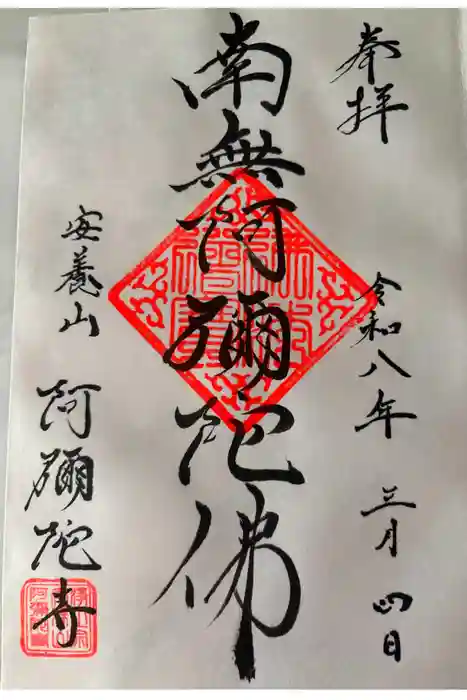 奉拝
令和八年 三月 四日
南無阿彌陀佛
安養山
阿彌陀寺